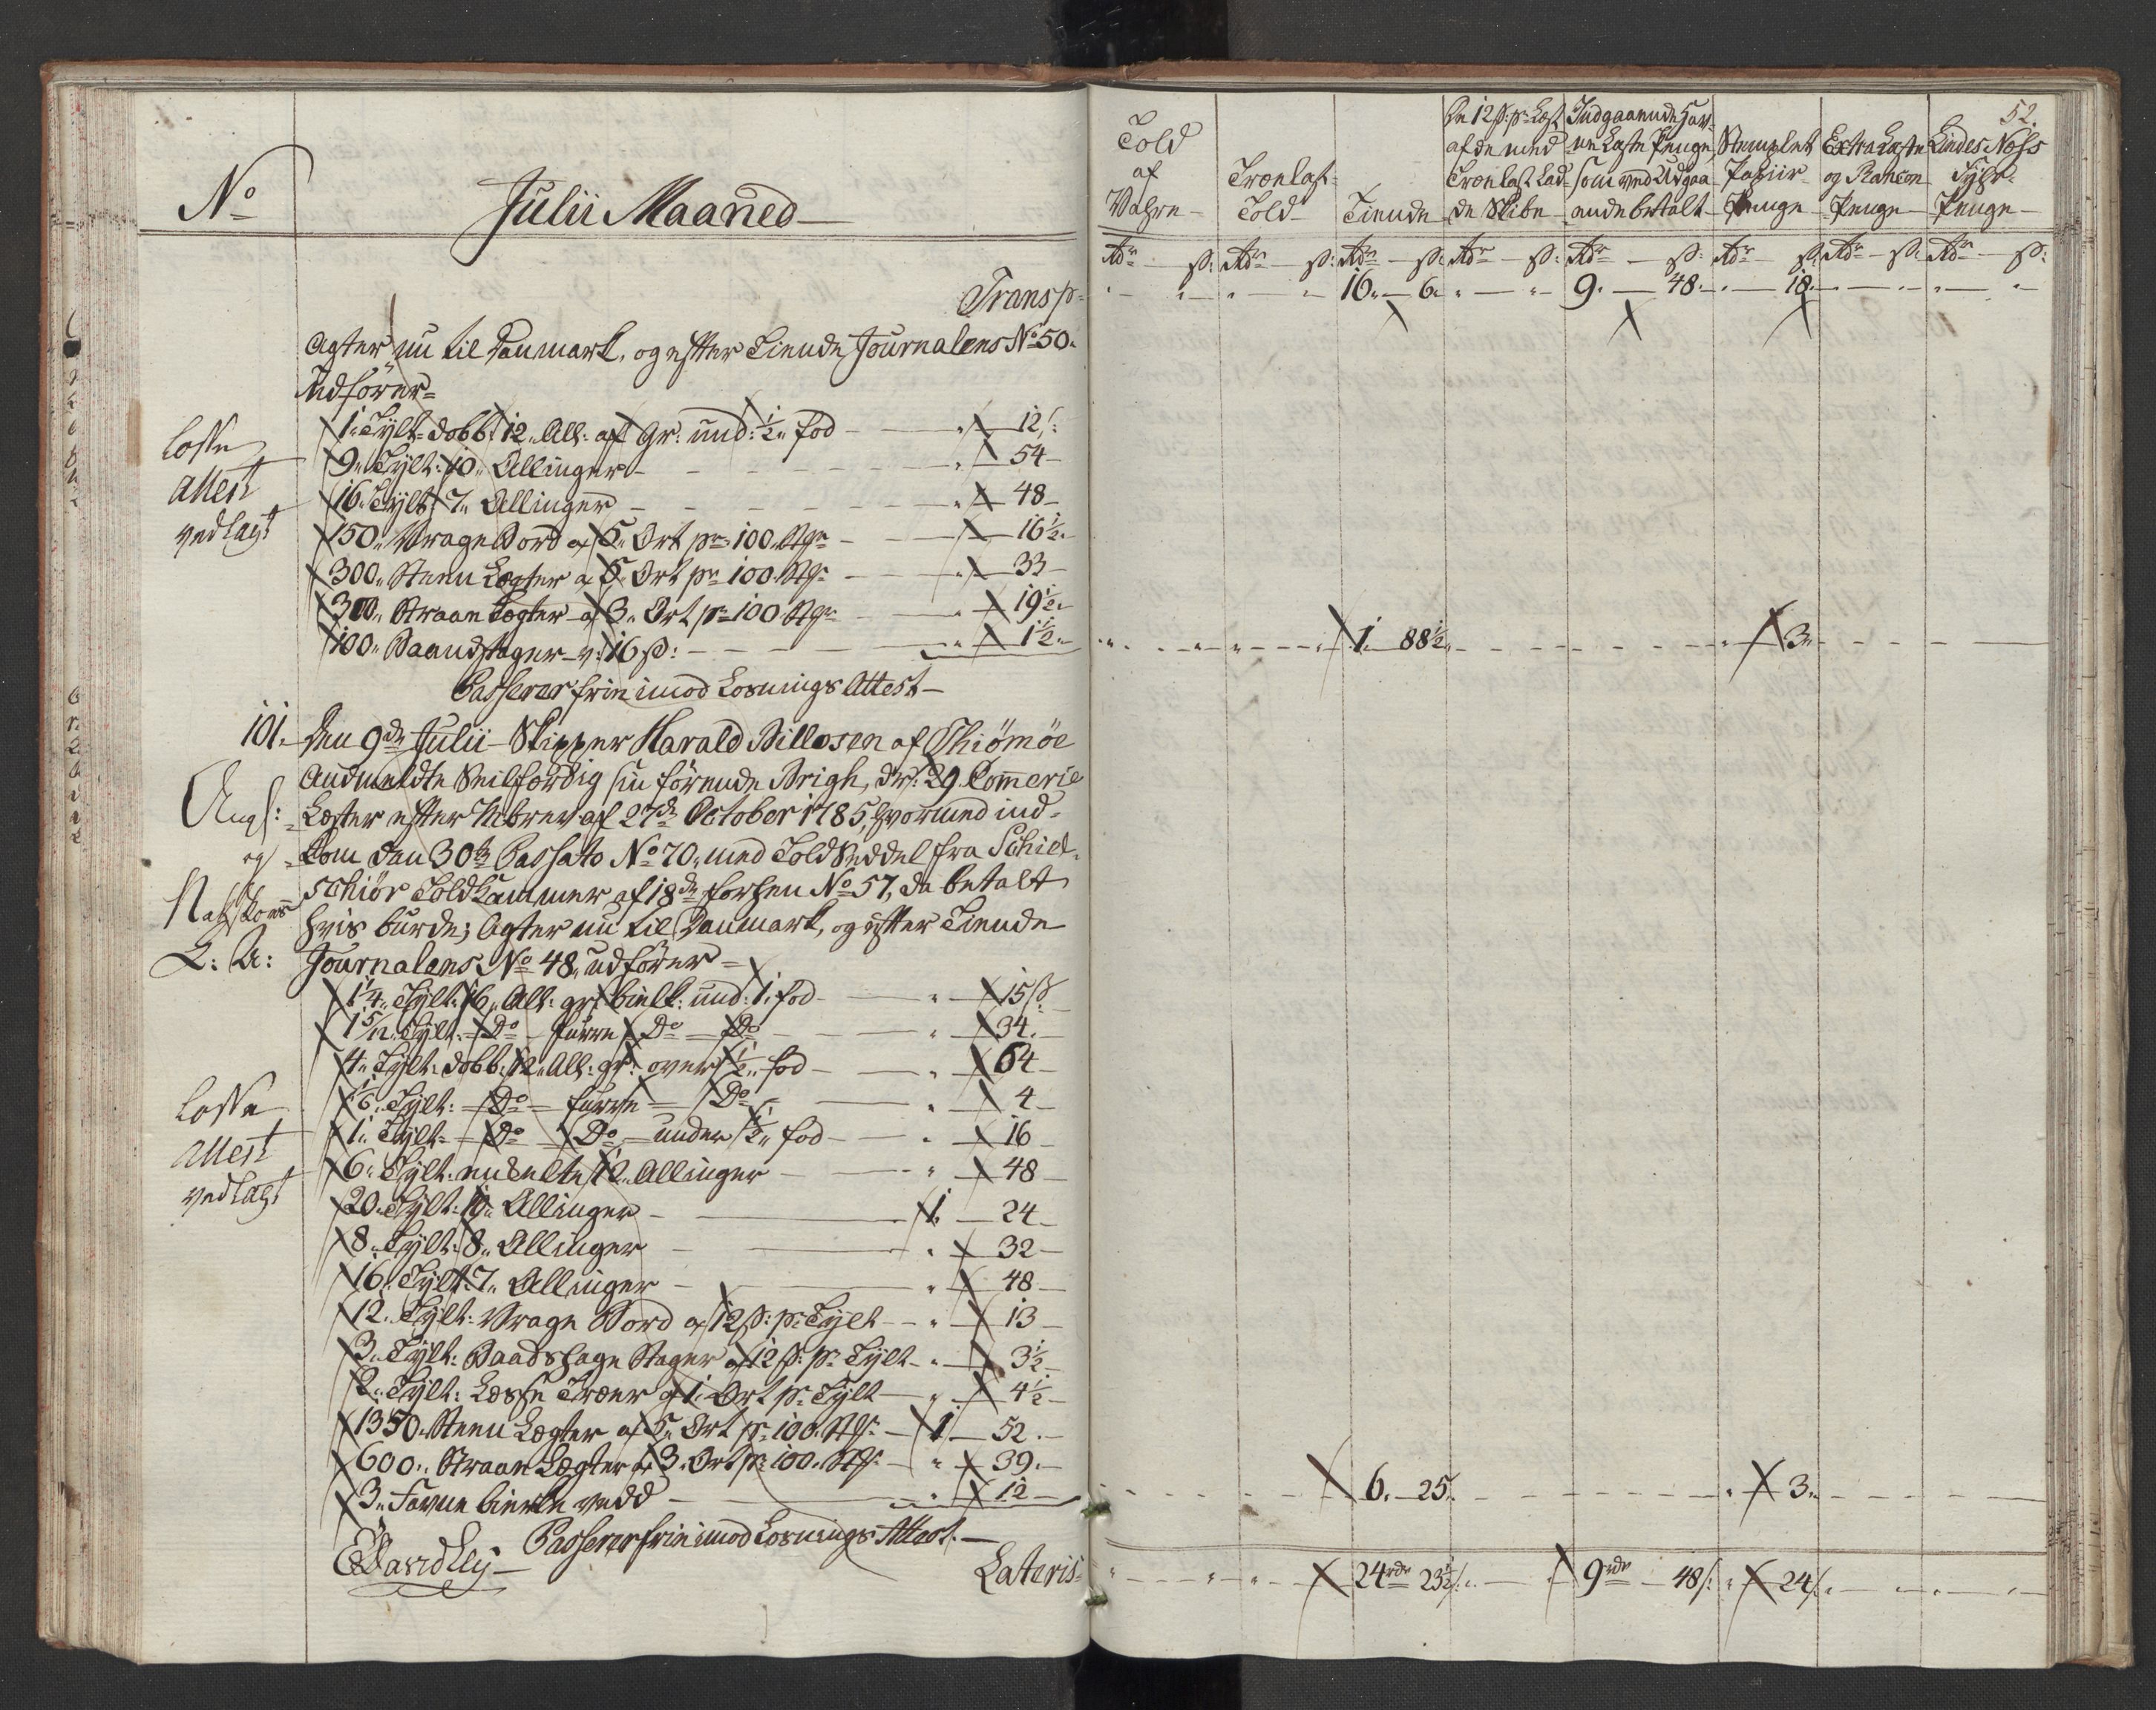 No
Julii Maaned
Transp:
Agter nu til Danmark, og efter Tiende Journalens No 50.
Udförer
1. Tylt: dobb: 12. All: af gr: und: 1/2 fod - 12 s:
9. Tylt: 10. Allinger - 54
16. Tylt 7. Allinger - 48
150. Wrage Bord a 5. Ort pr 100. - 16 1/2
300. Steen Lægter a 5 Ort pr 100. - 33
300. Straae Lægter a 3. Ort pr 100. - 19 1/2
100. Baandstager - 16 s: - 1 1/2
Passerer frie imod Losnings Attest
Losse
Attest
vedlagt
101. Den 9de Julii Skipper Harald Billosen af Thiömöe
Andmeldte Seilfærdig sin förende Brigh, dr: 29. Commerce
Læster efter Maalebrev af 27de October 1785, hvormed ind-
kom den 30te Passato No 70. med Told Seddel fra Schiel-
schiör Told Kammer af 18de forhen No 57, da betalt
hvis burde; Agter nu til Danmark, og efter Tiende
Journalens No 48. udförer
og
1 1/4. Tylt: 16. All: gr: bielk: und: 1. fod - 15 s
1 5/12. Tylt: Do furre Do Do - 34.
4. Tylt: dobb: 12. All: gr: over 1/2 fod - 64
1/6. Tylt: Do furre Do - 4
1. Tylt: Do Do under 1/2 fod - 16
6. Tylt: enkelte 12. Allinger - 48
20. Tylt: 10. Allinger - 1. 24
8. Tylt: 8. Allinger - 32
16. Tylt: 7. Allinger - 48
12. Tylt: Wrage Bord a 12 s: pr Tylt - 13
3. Tylt: Baadshage Stager a 12 s: pr Tylt - 3 1/2
2. Tylt: Læsse Træer a 1. Ort pr Tylt - 4 1/2
1350. Steen Lægter a 5. Ort pr 100. - 1. 52.
600. Straae Lægter a 3. Ort pr 100. - 39.
3. Favne birke vedd - 12
Passerer frie imod Losnings Attest.
Losse
Attest
vedlagt
Lateris
52.
Told af Vahre
Trælast Told
Tiende
De 12 s: pr Læst af de med Trælast Ladde Skibe
Indgaaende Havne Laste Penge, som ved Udgaaende betalt
Stemplet Papiir Penge
Extra Laste og Rancon Penge
Lindes Næss Fyhr Penge
Rdr s: Rdr s: Rdr s: Rdr s: Rdr s: Rdr s: Rdr s: Rdr s:
16. 6. 9. 48. 18.
1. 88 1/2 3.
6. 25. 3.
24 rdr 23 1/2 s: 9 rdr 48 s: 24 s.